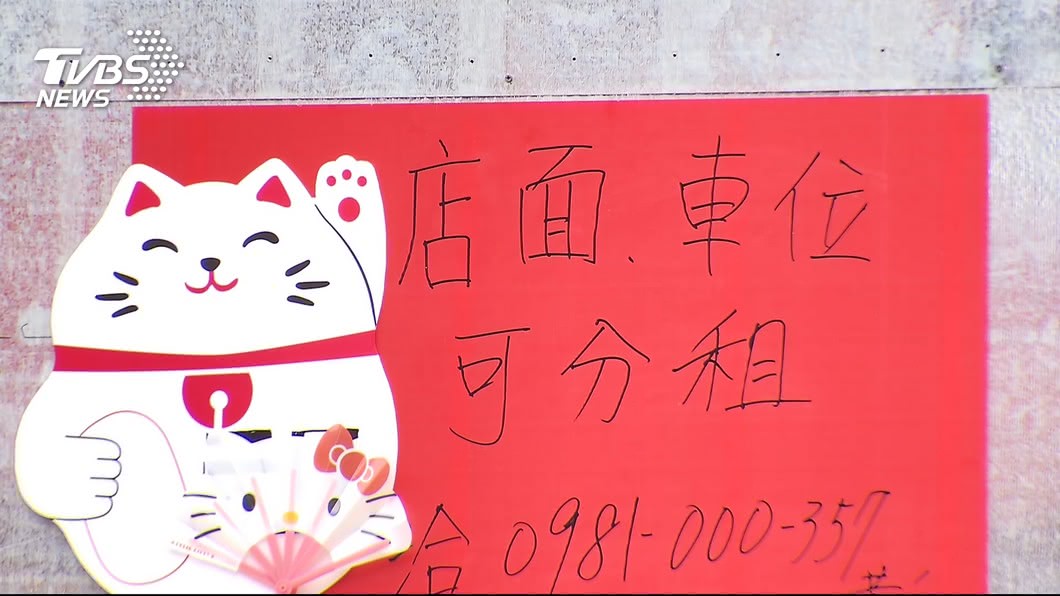 TVBS
NEWS
店面、車位
可分租
合 0981-000-357